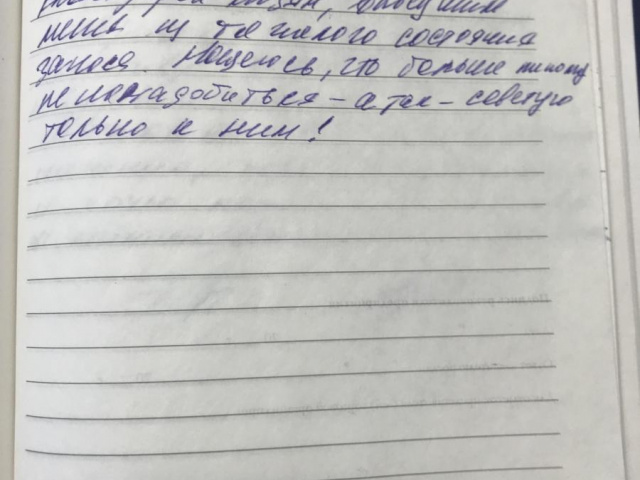 людям,
меня из тяжелого состояния
запоя. Надеюсь, что больше никому
не понадобиться - а так - советую
только к ним!